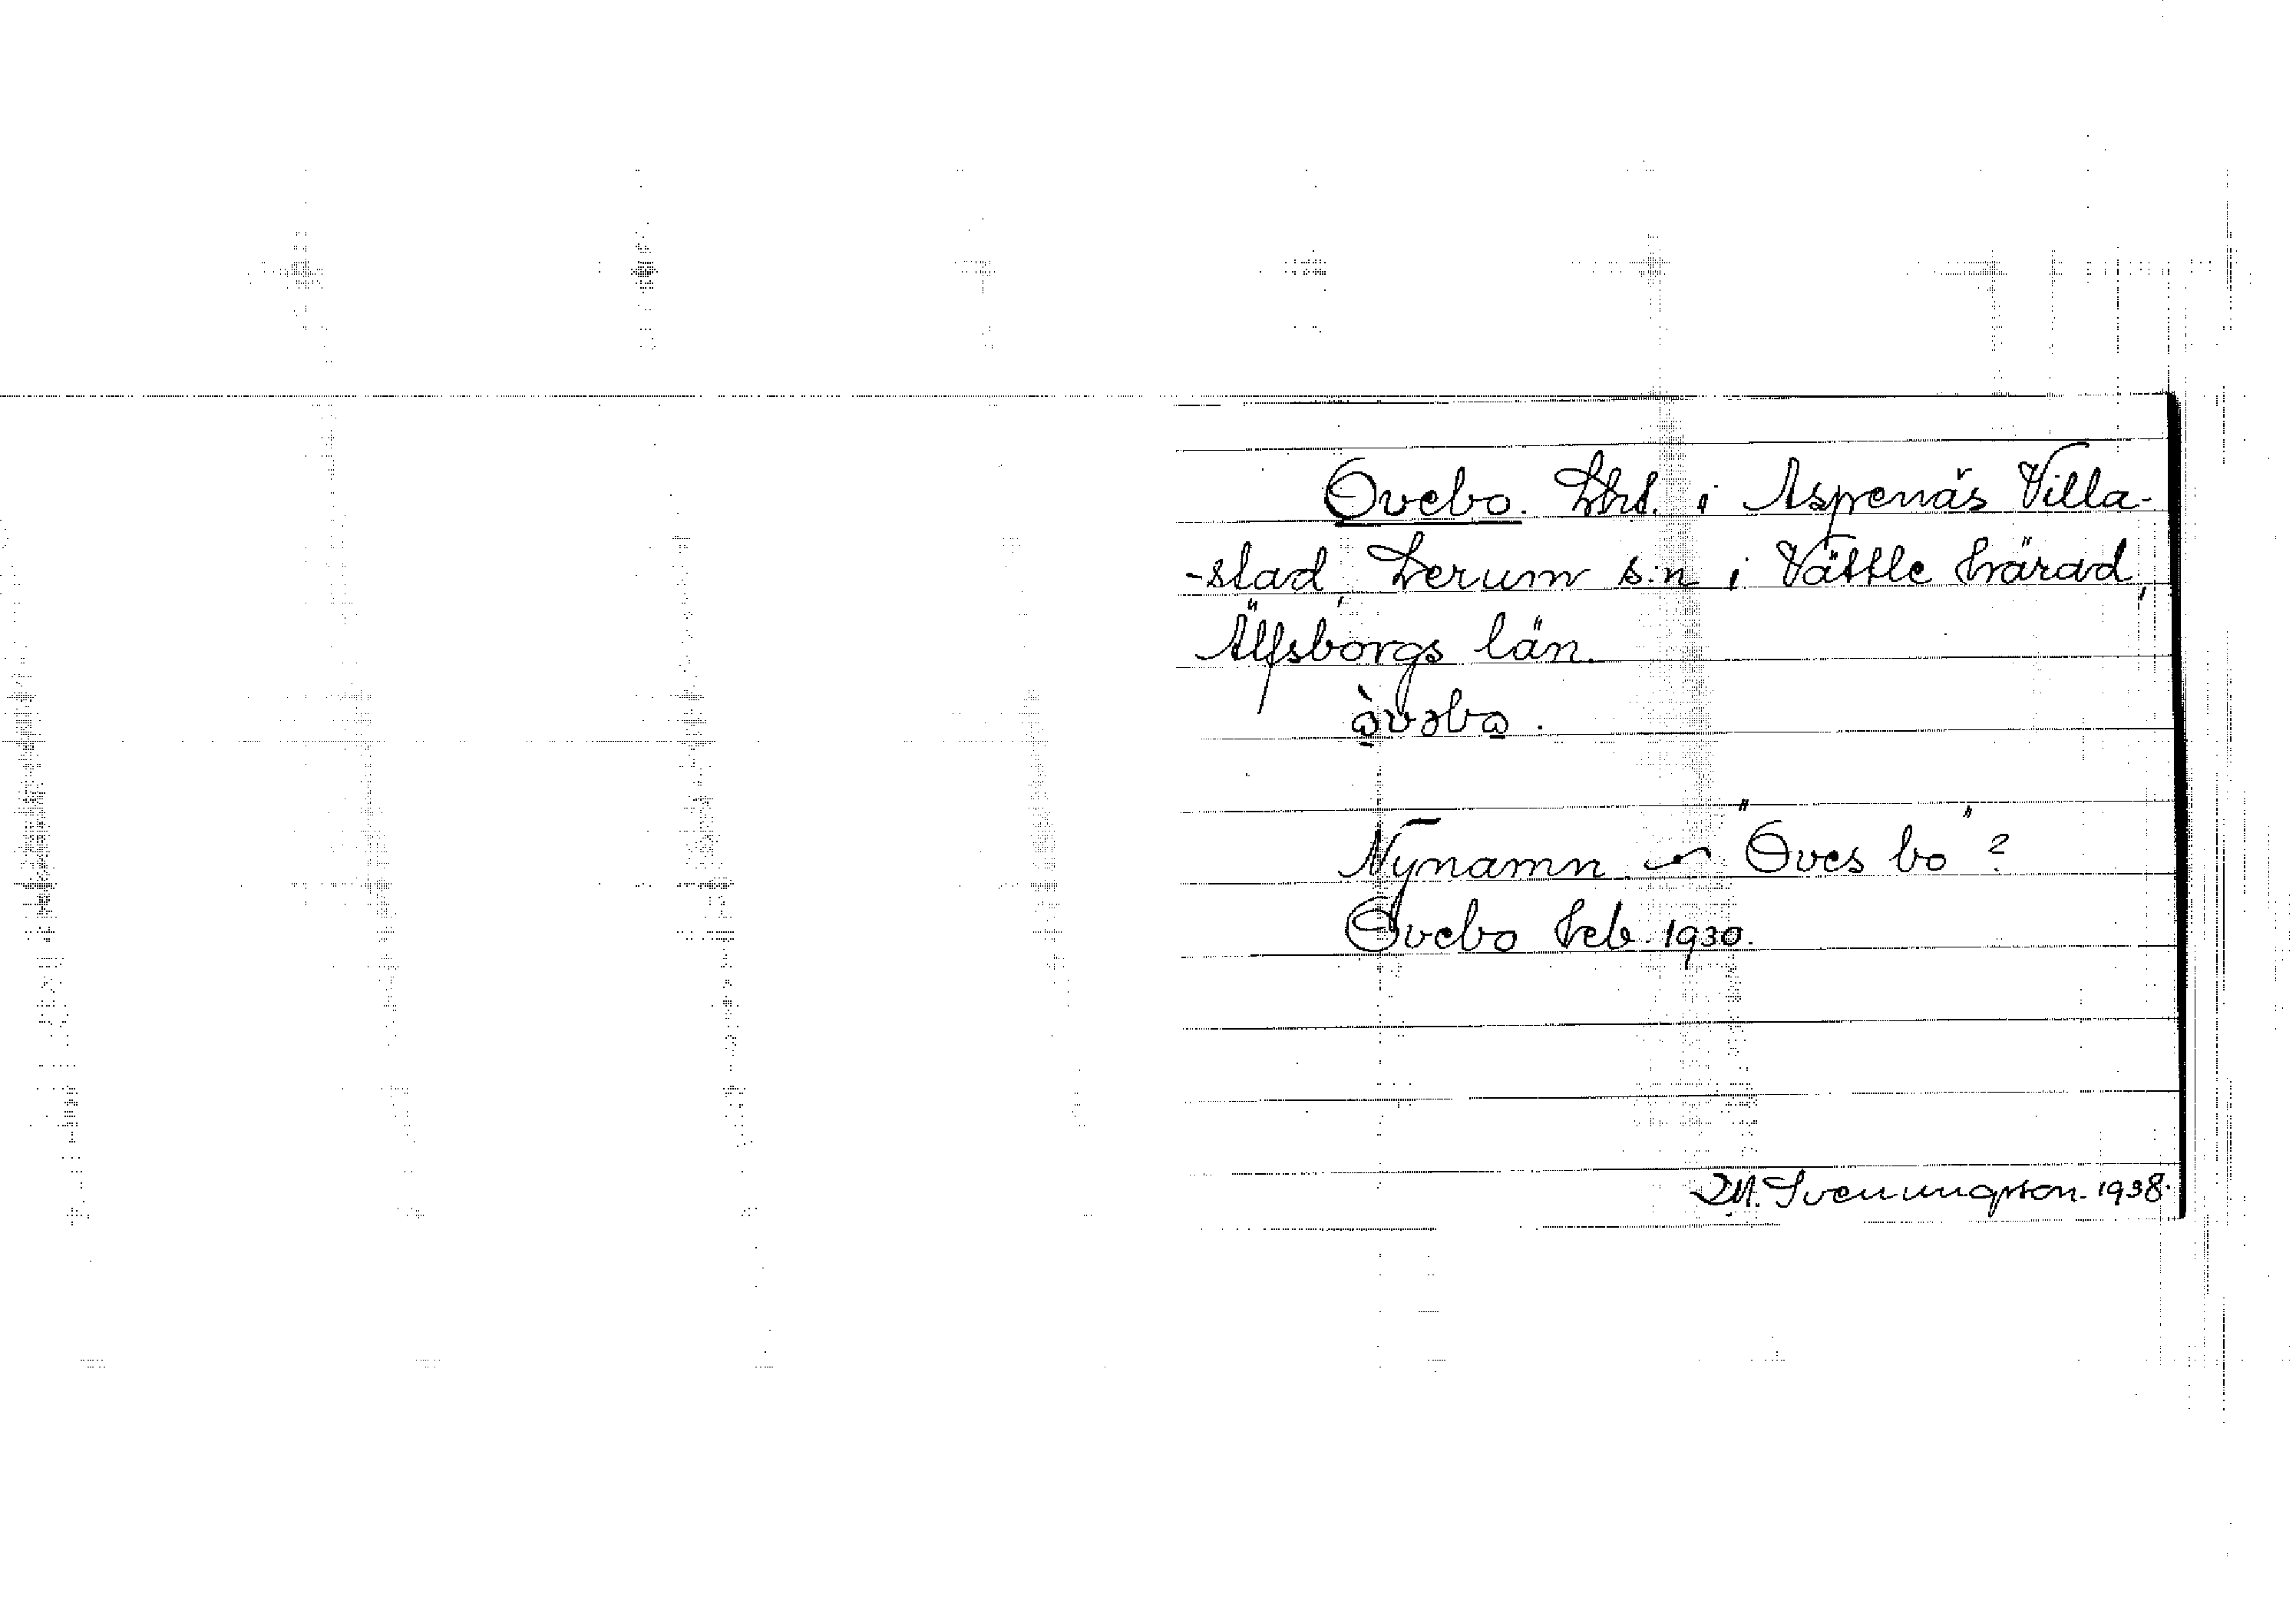 Ovebo. Lht. i Aspenäs Villa-
-stad, Lerum s:n i Vättle härad,
Älfsborgs län.
Nynamn ⁓ "Oves bo"?
Ovebo Jeb. 1930.
M. Svenungsson. 1938.